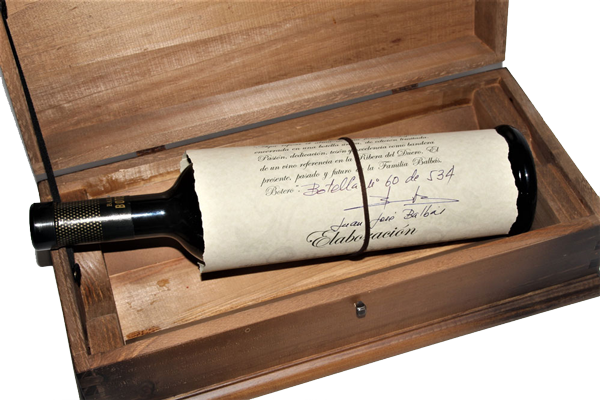 encerrado en una botella única de edición limitada
Pasión, dedicación, tesón y solera como bandera
de un vino referencia en la Ribera del Duero. El
presente, pasado y futuro de la Familia Balbás.
Botero
Botella nº 60 de 534
Juan José Balbás
Elaboración